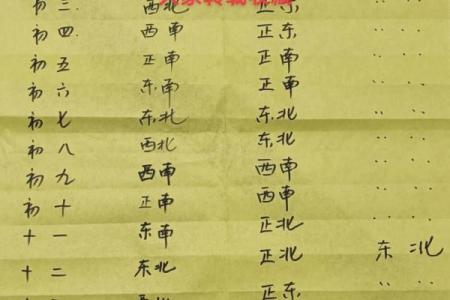 初三 西北 正东 ‥ ‥
初四 西南 正东 ‥ ‥
初五 正南 正南 ‥ ‥
初六 东南 正南 ‥ ‥
初七 东北 东北 ‥ ‥
初八 西北 东北 ‥ ‥
初九 西南 西南 ‥ ‥
初十 正南 西南 ‥ ‥
十一 东南 正北 ‥ ‥
十二 东北 正北 东北
正东 ‥ ‥